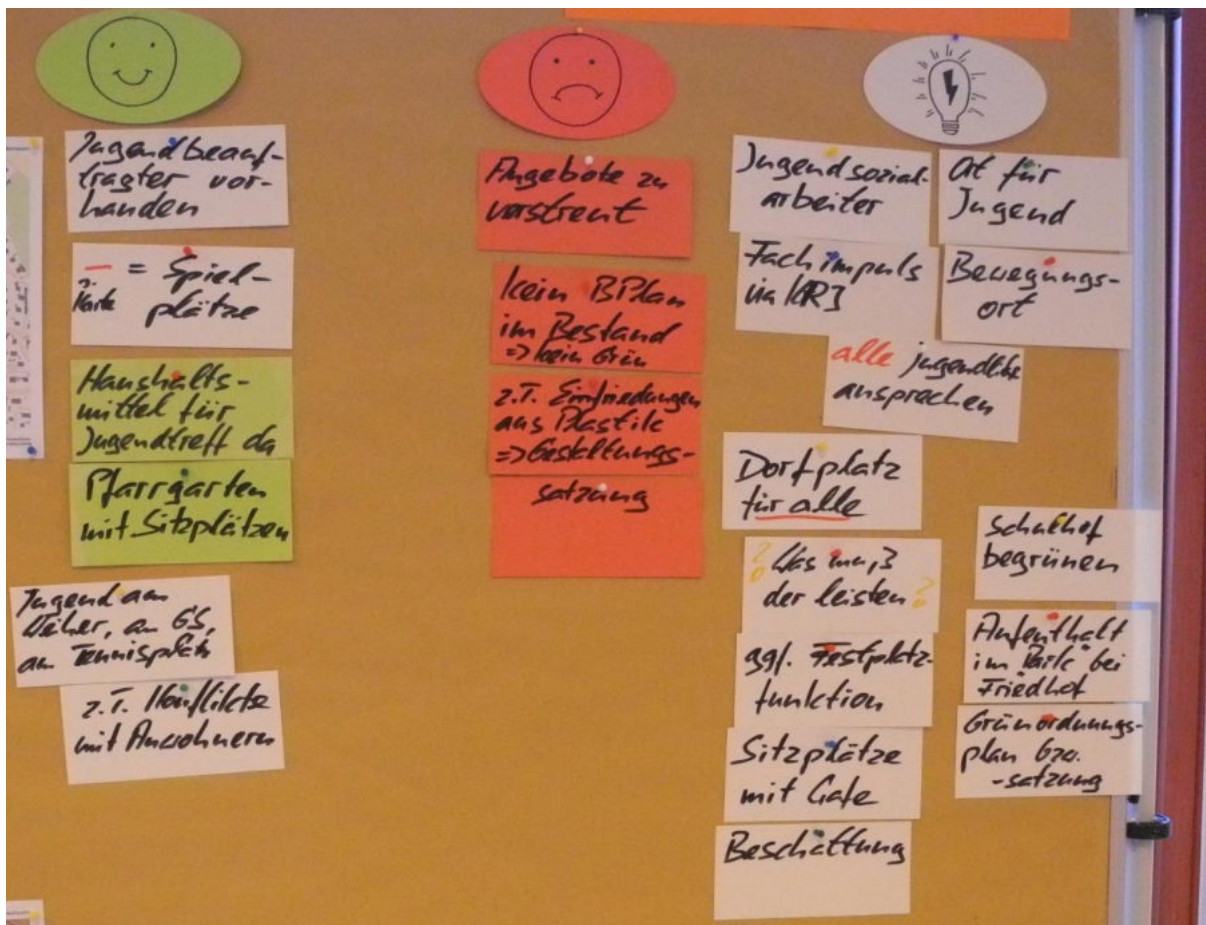 Jugendbeauf-
tragter vor-
handen
= Spiel-
Karte plätze
Haushalts-
mittel für
Jugendtreff da
Pfarrgarten
mit Sitzplätzen
Jugend am
Weiher, an GS,
am Tennisplatz
z.T. Konflikte
mit Anwohnern
Angebote zu
verstreut
kein BPlan
im Bestand
=> kein Grün
z.T. Einfriedungen
aus Plastik
=> Gestaltungs-
satzung
Jugendsozial-
arbeiter
Fachimpuls
via KRJ
alle jugendliche
ansprechen
Dorfplatz
für alle
? Was muß
der leisten?
ggf. Festplatz-
funktion
Sitzplätze
mit Cafe
Beschattung
Ort für
Jugend
Bewegungs-
ort
Schulhof
begrünen
Aufenthalt
im "Park" bei
Friedhof
Grünordnungs-
plan bzw.
-satzung